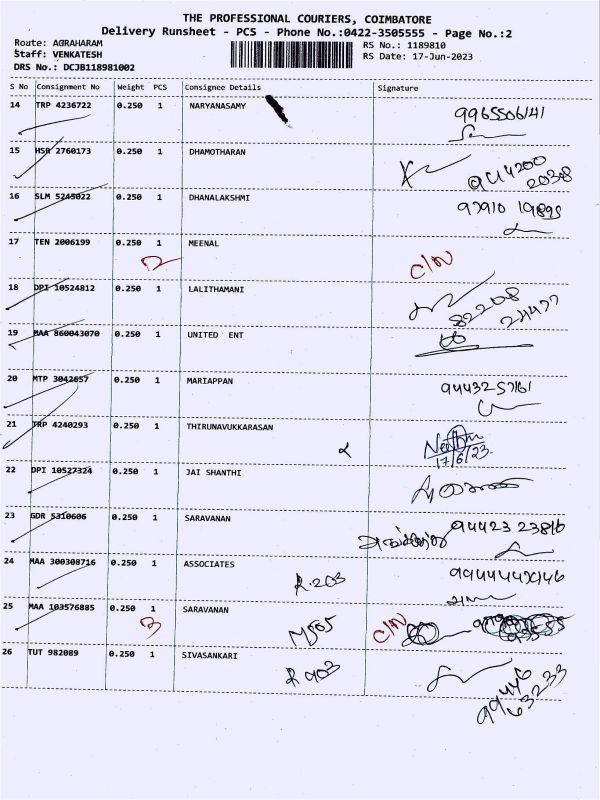 THE PROFESSIONAL COURIERS, COIMBATORE
Delivery Runsheet - PCS - Phone No.:0422-3505555 - Page No.:2
Route: AGRAHARAM
Staff: VENKATESH
DRS No.: DCJB118981002
RS No.: 1189810
RS Date: 17-Jun-2023
S No Consignment No Weight PCS Consignee Details Signature
14 TRP 4236722 0.250 1 NARYANASAMY 9965506141
15 HSR 2760173 0.250 1 DHAMOTHARAN
16 SLM 5245022 0.250 1 DHANALAKSHMI 97910 19895
17 TEN 2006199 0.250 1 MEENAL C/N
18 DPI 10524812 0.250 1 LALITHAMANI 82208
19 MAA 860043070 0.250 1 UNITED ENT
20 MTP 3042657 0.250 1 MARIAPPAN
21 TRP 4240293 0.250 1 THIRUNAVUKKARASAN
17/6/23
22 DPI 10527324 0.250 1 JAI SHANTHI
23 GDR 5310606 0.250 1 SARAVANAN 94423 23816
24 MAA 300308716 0.250 1 ASSOCIATES R.203
25 MAA 103576885 0.250 1 SARAVANAN M565 C/N
26 TUT 982089 0.250 1 SIVASANKARI R 903
99446
63233